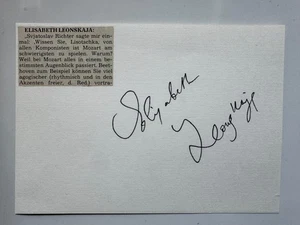 ELISABETH LEONSKAJA:
„Svjatoslav Richter sagte mir ein-
mal: ‚Wissen Sie, Lisotschka, von
allen Komponisten ist Mozart am
schwierigsten zu spielen. Warum?
Weil bei Mozart alles in einem be-
stimmten Augenblick passiert. Beet-
hoven zum Beispiel können Sie viel
agogischer (rhythmisch und in
den Akzenten freier, d. Red.) vortra-
Elisabeth
Leonskaja